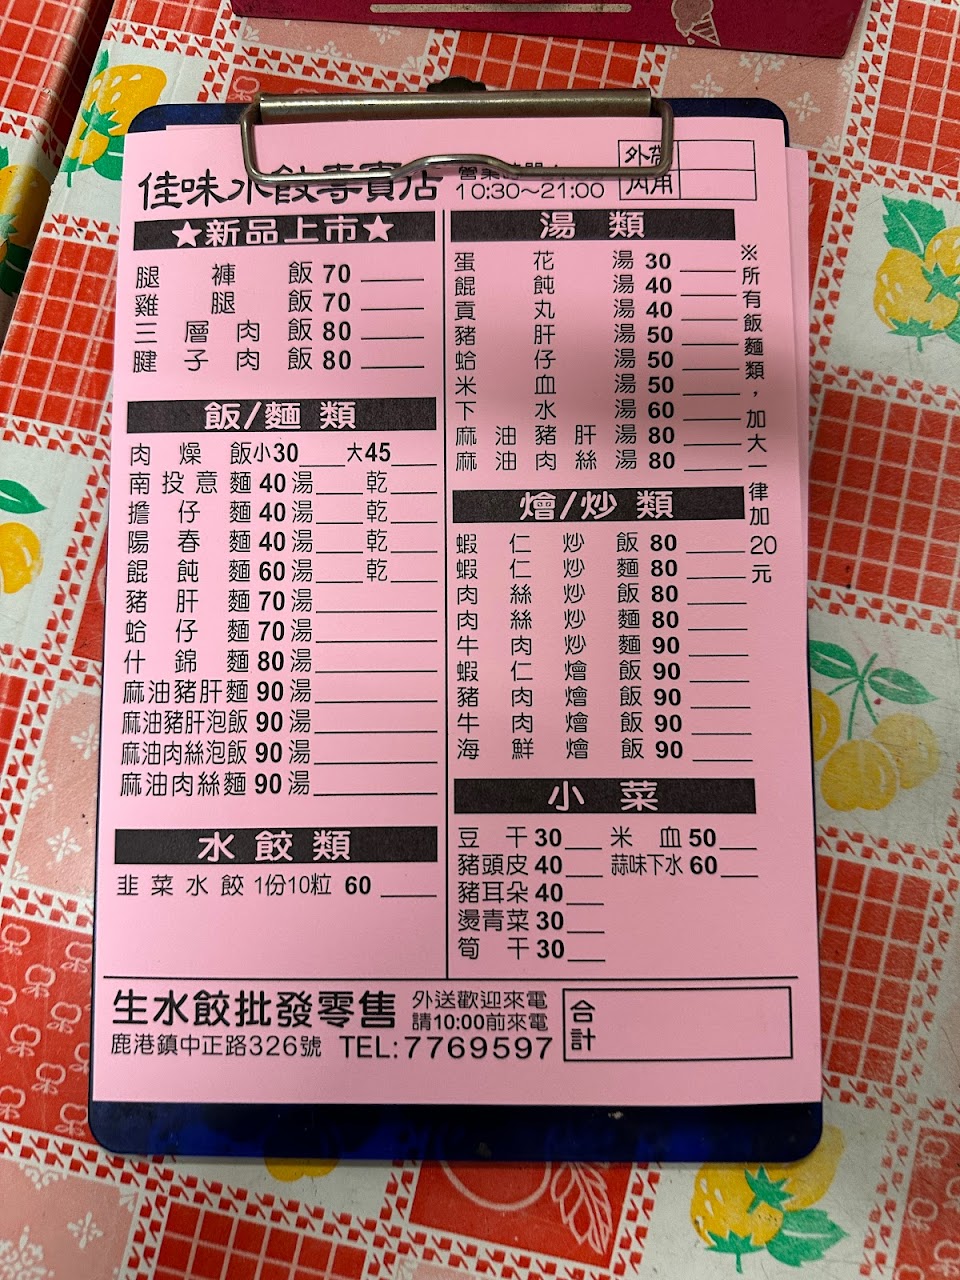 佳味水餃專賣店
營業時間：
10:30～21:00
外帶
內用
★新品上市★
腿褲飯 70
雞腿飯 70
三層肉飯 80
腱子肉飯 80
飯/麵 類
肉燥飯小30 大45
南投意麵 40 湯 乾
擔仔麵 40 湯 乾
陽春麵 40 湯 乾
餛飩麵 60 湯 乾
豬肝麵 70 湯
蛤仔麵 70 湯
什錦麵 80 湯
麻油豬肝麵 90 湯
麻油豬肝泡飯 90 湯
麻油肉絲泡飯 90 湯
麻油肉絲麵 90 湯
水餃類
韭菜水餃 1份10粒 60
湯 類
蛋花湯 30
餛飩湯 40
貢丸湯 40
豬肝湯 50
蛤仔湯 50
米血湯 50
下水湯 60
麻油豬肝湯 80
麻油肉絲湯 80
燴/炒 類
蝦仁炒飯 80
蝦仁炒麵 80
肉絲炒飯 80
肉絲炒麵 80
牛肉炒麵 90
蝦仁燴飯 90
豬肉燴飯 90
牛肉燴飯 90
海鮮燴飯 90
小 菜
豆干 30 米血 50
豬頭皮 40 蒜味下水 60
豬耳朵 40
燙青菜 30
筍干 30
※所有飯麵類，加大一律加20元
生水餃批發零售
外送歡迎來電
請10:00前來電
鹿港鎮中正路326號 TEL:7769597
合計